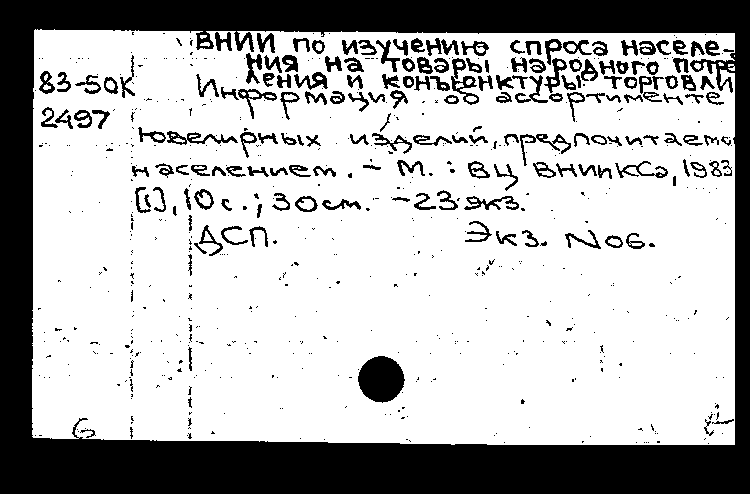 ВНИИ по изучению спроса населе-
ния на товары народного потре
83-50к
ления и конъюнктуры торговли
Информация об ассортименте
2497
ювелирных изделий, предпочитаемо
населением. - М. : ВЦ ВНИИКСа, 1983
[1], 10 с. ; 30 см. - 23 экз.
ДСП. Экз. №06.
6